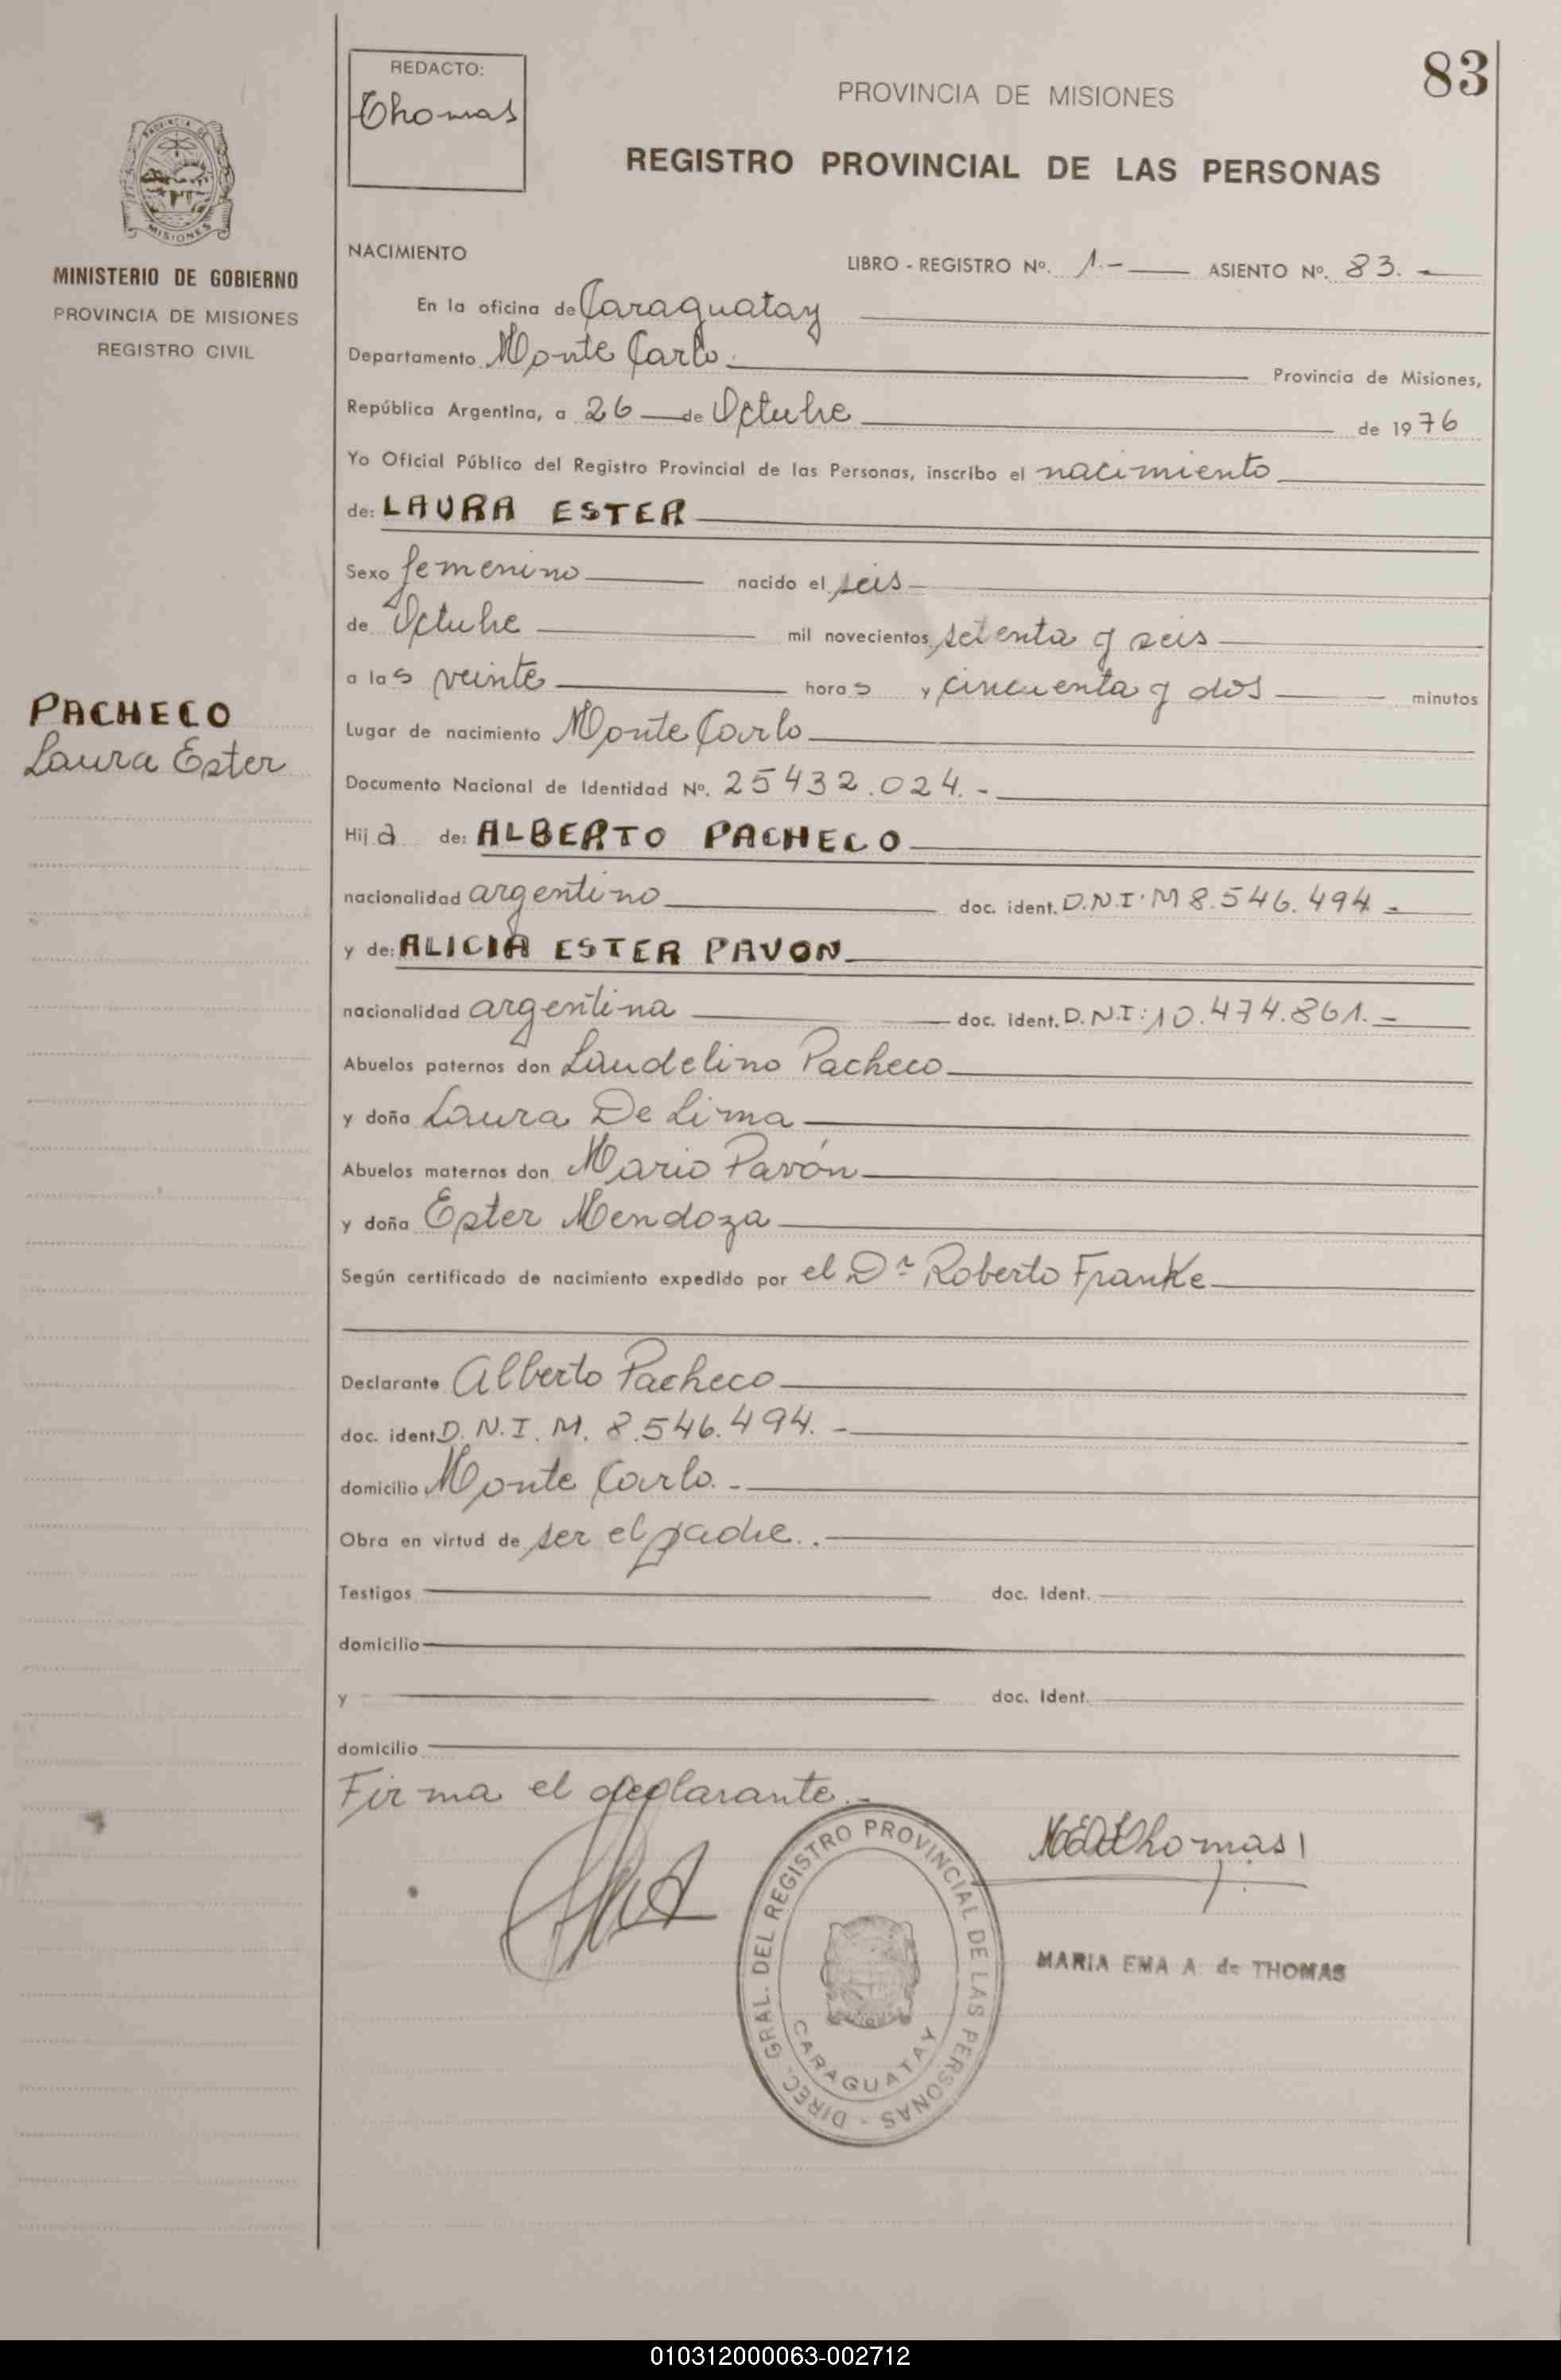 83
REDACTO:
Thomas
PROVINCIA DE MISIONES
REGISTRO PROVINCIAL DE LAS PERSONAS
PROVINCIA DE
MISIONES
MINISTERIO DE GOBIERNO
PROVINCIA DE MISIONES
REGISTRO CIVIL
PACHECO
Laura Ester
NACIMIENTO
LIBRO - REGISTRO Nº. 1.- ASIENTO Nº. 83.-
En la oficina de Caraguatay
Departamento Monte Carlo. Provincia de Misiones,
República Argentina, a 26 de Octubre de 1976
Yo Oficial Público del Registro Provincial de las Personas, inscribo el nacimiento
de: LAURA ESTER
Sexo femenino nacido el seis
de Octubre mil novecientos setenta y seis
a las veinte horas y cincuenta y dos minutos
Lugar de nacimiento Monte Carlo
Documento Nacional de Identidad Nº. 25432.024.-
Hija de: ALBERTO PACHECO
nacionalidad argentino doc. ident. D.N.I.M 8.546.494-
y de: ALICIA ESTER PAVON
nacionalidad argentina doc. ident. D.N.I: 10.474.861.-
Abuelos paternos don Laudelino Pacheco
y doña Laura De Lima
Abuelos maternos don Mario Pavón
y doña Ester Mendoza
Según certificado de nacimiento expedido por el Dr Roberto Franke
Declarante Alberto Pacheco
doc. ident. D.N.I.M. 8.546.494.-
domicilio Monte Carlo.-
Obra en virtud de ser el padre..
Testigos doc. Ident.
domicilio
y doc. Ident.
domicilio
Firma el declarante.-
Thomas
MARIA EMA A. de THOMAS
DIREC. GRAL. DEL REGISTRO PROVINCIAL DE LAS PERSONAS -
CARAGUATAY
010312000063-002712